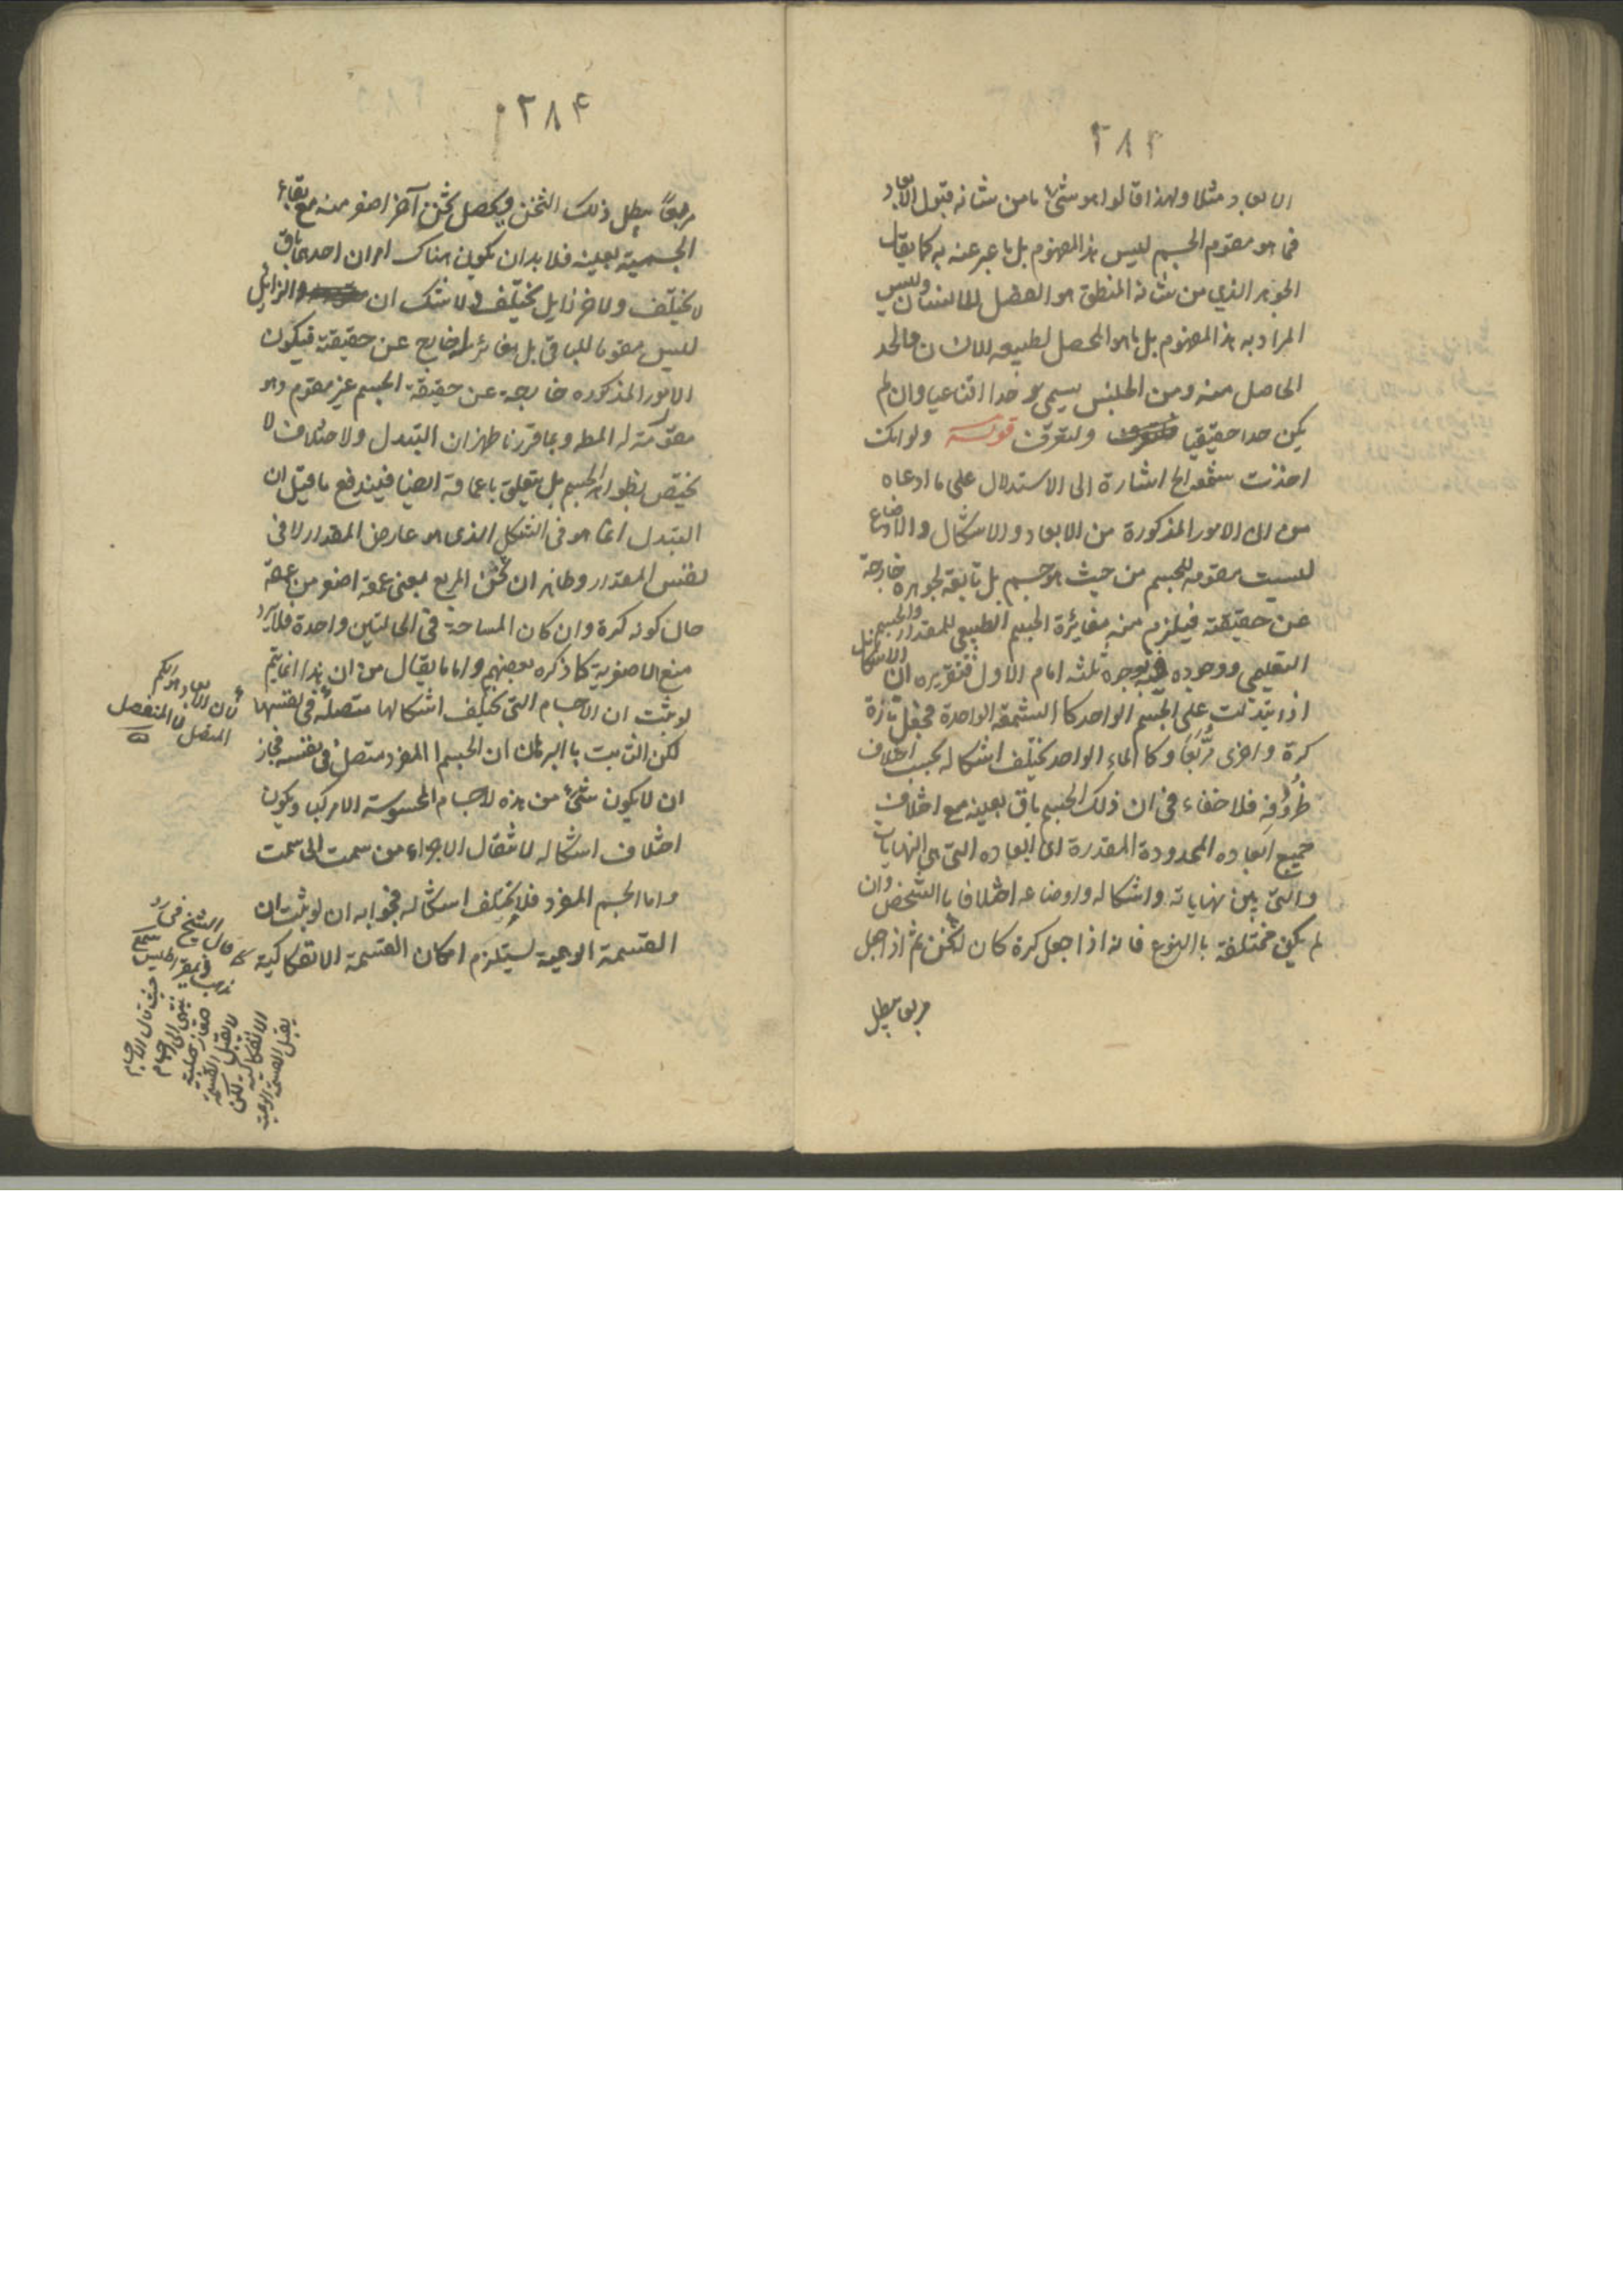 ٢٨٣
الابعاد مثلا ولهذا قالوا هو شئ ما من شانه قبول الابعاد
فما هو مقوم الجسم ليس هذا المفهوم بل ما عبر عنه به كما يقال
الجوهر الذي من شانه المنطق هو الفصل للانسان وليس
المراد به هذا المفهوم بل ما هو المحصل لطبيعه الانسان فالحد
الحاصل منه ومن الجنس يسمى حدا اقناعيا وان لم
يكن حدا حقيقيا ولتعرف قوله ولو انك
اخذت شمعه الخ اشارة الى الاستدلال على ما ادعاه
من ان الامور المذكورة من الابعاد والاشكال والاوضاع
ليست مقومه للجسم من حيث هو جسم بل تابعة لجوهره خارجة
عن حقيقته فيلزم منه مغائرة الجسم الطبيعي للمقدار والجسم
التعليمي ووجوده فيه بوجوه ثلثه اما الاول فتقريره ان الاشكال
اذا تبدلت على الجسم الواحد كالشمعه الواحدة تجعل تارة
كرة واخرى مربعا وكالماء الواحد يختلف اشكاله بحسب اختلاف
ظروفه فلا خفاء في ان ذلك الجسم باق بعينه مع اختلاف
جميع ابعاده المحدودة المقدرة اى ابعاده التى هي النهايات
والتى بين نهاياته واشكاله واوضاعه اختلافا بالشخص وان
لم يكن مختلفة بالنوع فانه اذا جعل كرة كان له ثخن ثم اذا جعل
مربعا يبطل
٢٨٤
مربعاً يبطل ذلك الثخن ويحصل ثخن آخر اصغر منه مع بقاء
الجسمية بعينه فلا بد ان يكون هناك امران احدهما باق
لا يختلف والاخر زايل يختلف ولا شك ان الزايل
ليس مقوما للباقي بل مغائر له خارج عن حقيقته فيكون
الامور المذكوره خارجة عن حقيقة الجسم غير مقوم وهو
مقومة له المط وبما قررنا ظهر ان التبدل والاختلاف لا
يختص بظواهر الجسم بل يتعلق باعماقه ايضا فيندفع ما قيل ان
التبدل انما هو فى الشكل الذى هو عارض المقدار لا فى
نفس المقدار وظاهر ان ثخن المربع بمعنى عمقه اصغر من عمقه
حال كونه كرة وان كان المساحة في الحالتين واحدة فلا يرد
منع الاصغرية كما ذكره بعضهم واما ما يقال من ان هذا انما يتم
لو ثبت ان الاجسام التى تختلف اشكالها متصلة في نفسها
لكن الثابت بالبرهان ان الجسم المفرد متصل فى نفسه فجاز
ان لا يكون شئ من هذه الاجسام المحسوسة الا مركبا ويكون
اختلاف اشكاله لانتقال الاجزاء من سمت الى سمت
واما الجسم المفرد فلا يختلف اشكاله فجوابه ان لو ثبت ان
القسمة الوهمية يستلزم امكان القسمة الانفكاكية
لان الابعاد هو الكم
المتصل لا المنفصل
قال الشيخ في رد
مذهب ذيمقراطيس
حيث قال الاجسام
ينتهى الى اجسام
صغار صلبة
لا تقبل القسمة
الانفكاكية لكن
يقبل القسمة الوهمية